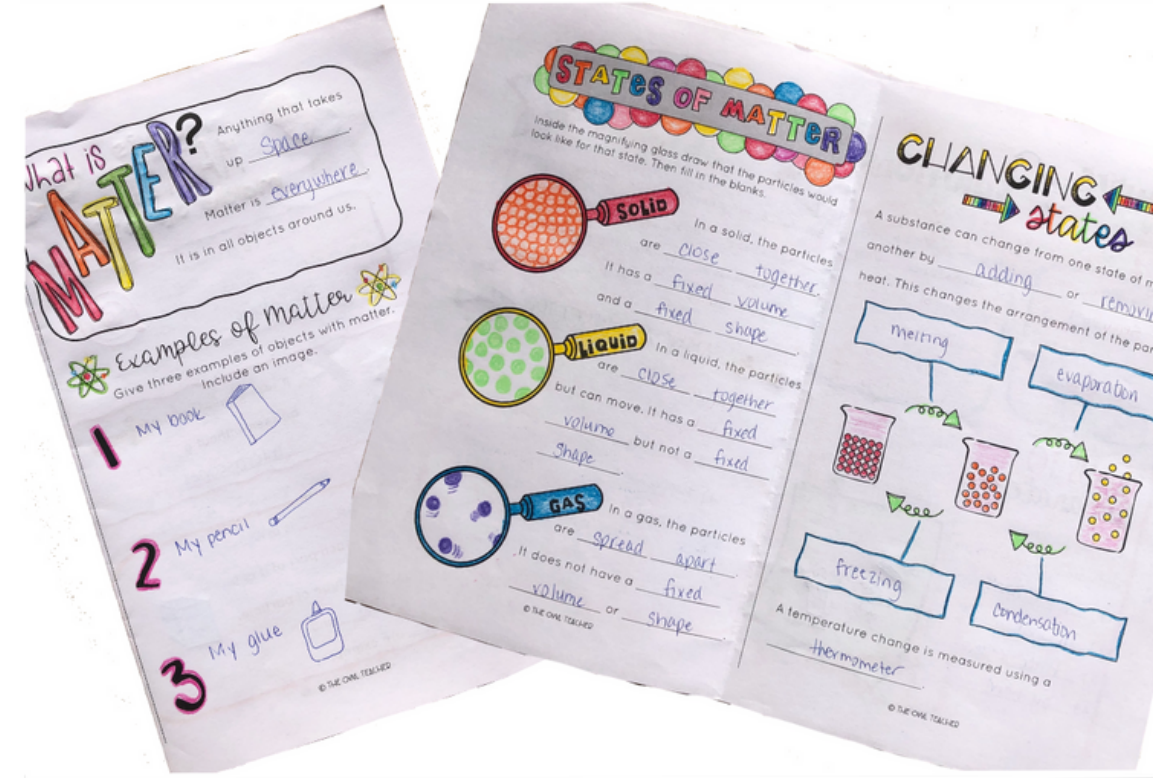 What is
MATTER?
Anything that takes
up Space.
Matter is everywhere.
It is in all objects around us.
Examples of Matter
Give three examples of objects with matter.
Include an image.
1 My book
2 My pencil
3 My glue
© THE OWL TEACHER
STATES OF MATTER
Inside the magnifying glass draw that the particles would
look like for that state. Then fill in the blanks.
SOLID
In a solid, the particles
are close together.
It has a fixed volume
and a fixed shape.
LIQUID
In a liquid, the particles
are close together
but can move. It has a fixed
volume but not a fixed
shape.
GAS
In a gas, the particles
are spread apart.
It does not have a fixed
volume or shape.
© THE OWL TEACHER
CHANGING
states
A substance can change from one state of
another by adding or
heat. This changes the arrangement of the
melting
evaporation
freezing
condensation
A temperature change is measured using a
thermometer.
© THE OWL TEACHER